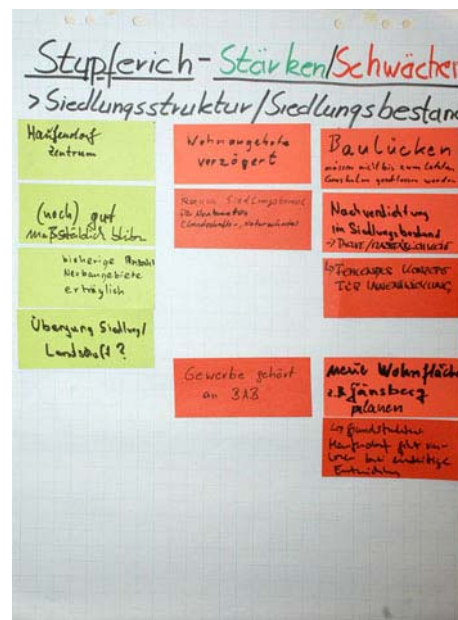 Stupferich - Stärken/Schwächen
> Siedlungsstruktur/Siedlungsbestand
Haufendorf
Zentrum
(noch) gut
maßstäblich
bisherige Anzahl
Neubaugebiete
erträglich
Übergang Siedlung/
Landschaft?
Wohnangebote
verzögert
Gewerbe gehört
an BAB
Baulücken
müssen nicht bis zum letzten
geschlossen werden
Nachverdichtung
im Siedlungsbestand
->
↳ Fehlendes Konzept
für Innenentwicklung
neue Wohnfläche
z.B. Gänsberg
planen
↳ Grundstruktur
Haufendorf geht ver-
loren bei einseitiger
Entwicklung